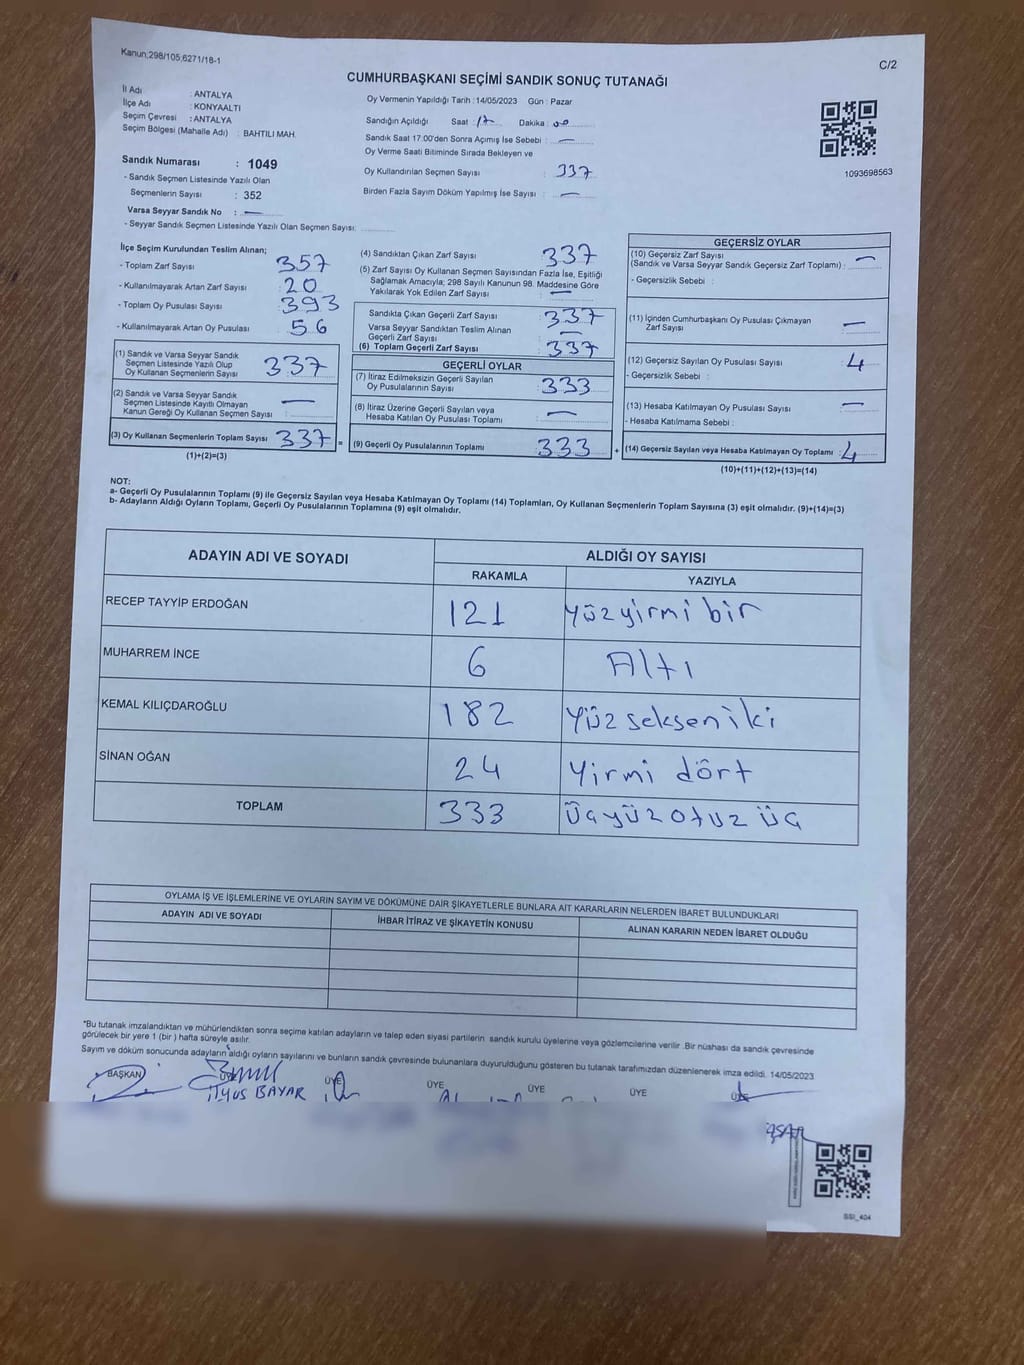 Kanun;298/105,6271/18-1
C/2
CUMHURBAŞKANI SEÇİMİ SANDIK SONUÇ TUTANAĞI
İl Adı : ANTALYA
İlçe Adı : KONYAALTI
Seçim Çevresi : ANTALYA
Seçim Bölgesi (Mahalle Adı) : BAHTILI MAH.
Sandık Numarası : 1049
- Sandık Seçmen Listesinde Yazılı Olan
Seçmenlerin Sayısı : 352
Varsa Seyyar Sandık No : —
- Seyyar Sandık Seçmen Listesinde Yazılı Olan Seçmen Sayısı:
Oy Vermenin Yapıldığı Tarih : 14/05/2023 Gün : Pazar
Sandığın Açıldığı Saat : 17 Dakika : 00
Sandık Saat 17:00'den Sonra Açımış İse Sebebi : —
Oy Verme Saati Bitiminde Sırada Bekleyen ve
Oy Kullandırılan Seçmen Sayısı : 337
Birden Fazla Sayım Döküm Yapılmış İse Sayısı : —
1093698563
İlçe Seçim Kurulundan Teslim Alınan;
- Toplam Zarf Sayısı : 357
- Kullanılmayarak Artan Zarf Sayısı : 20
- Toplam Oy Pusulası Sayısı : 393
- Kullanılmayarak Artan Oy Pusulası : 56
(1) Sandık ve Varsa Seyyar Sandık
Seçmen Listesinde Yazılı Olup
Oy Kullanan Seçmenlerin Sayısı : 337
(2) Sandık ve Varsa Seyyar Sandık
Seçmen Listesinde Kayıtlı Olmayan
Kanun Gereği Oy Kullanan Seçmen Sayısı : —
(3) Oy Kullanan Seçmenlerin Toplam Sayısı : 337 =
(1)+(2)=(3)
(4) Sandıktan Çıkan Zarf Sayısı : 337
(5) Zarf Sayısı Oy Kullanan Seçmen Sayısından Fazla İse, Eşitliği
Sağlamak Amacıyla; 298 Sayılı Kanunun 98. Maddesine Göre
Yakılarak Yok Edilen Zarf Sayısı : —
Sandıkta Çıkan Geçerli Zarf Sayısı : 337
Varsa Seyyar Sandıktan Teslim Alınan
Geçerli Zarf Sayısı : —
(6) Toplam Geçerli Zarf Sayısı : 337
GEÇERLİ OYLAR
(7) İtiraz Edilmeksizin Geçerli Sayılan
Oy Pusulalarının Sayısı : 333
(8) İtiraz Üzerine Geçerli Sayılan veya
Hesaba Katılan Oy Pusulası Toplamı : —
(9) Geçerli Oy Pusulalarının Toplamı : 333 +
GEÇERSİZ OYLAR
(10) Geçersiz Zarf Sayısı
(Sandık ve Varsa Seyyar Sandık Geçersiz Zarf Toplamı) : —
- Geçersizlik Sebebi :
(11) İçinden Cumhurbaşkanı Oy Pusulası Çıkmayan
Zarf Sayısı : —
(12) Geçersiz Sayılan Oy Pusulası Sayısı : 4
- Geçersizlik Sebebi :
(13) Hesaba Katılmayan Oy Pusulası Sayısı : —
- Hesaba Katılmama Sebebi :
(14) Geçersiz Sayılan veya Hesaba Katılmayan Oy Toplamı : 4
(10)+(11)+(12)+(13)=(14)
NOT:
a- Geçerli Oy Pusulalarının Toplamı (9) ile Geçersiz Sayılan veya Hesaba Katılmayan Oy Toplamı (14) Toplamları, Oy Kullanan Seçmenlerin Toplam Sayısına (3) eşit olmalıdır. (9)+(14)=(3)
b- Adayların Aldığı Oyların Toplamı, Geçerli Oy Pusulalarının Toplamına (9) eşit olmalıdır.
ADAYIN ADI VE SOYADI ALDIĞI OY SAYISI
RAKAMLA YAZIYLA
RECEP TAYYİP ERDOĞAN 121 Yüzyirmi bir
MUHARREM İNCE 6 Altı
KEMAL KILIÇDAROĞLU 182 Yüzseksen iki
SİNAN OĞAN 24 Yirmi dört
TOPLAM 333 Üçyüz otuz üç
OYLAMA İŞ VE İŞLEMLERİNE VE OYLARIN SAYIM VE DÖKÜMÜNE DAİR ŞİKAYETLERLE BUNLARA AİT KARARLARIN NELERDEN İBARET BULUNDUKLARI
ADAYIN ADI VE SOYADI İHBAR İTİRAZ VE ŞİKAYETİN KONUSU ALINAN KARARIN NEDEN İBARET OLDUĞU
*Bu tutanak imzalandıktan ve mühürlendikten sonra seçime katılan adayların ve talep eden siyasi partilerin sandık kurulu üyelerine veya gözlemcilerine verilir .Bir nüshası da sandık çevresinde
görülecek bir yere 1 (bir ) hafta süreyle asılır.
Sayım ve döküm sonucunda adayların aldığı oyların sayılarını ve bunların sandık çevresinde bulunanlara duyurulduğunu gösteren bu tutanak tarafımızdan düzenlenerek imza edildi. 14/05/2023
BAŞKAN ÜYE ÜYE ÜYE ÜYE ÜYE ÜYE
İlyas BAYAR
SSI_404